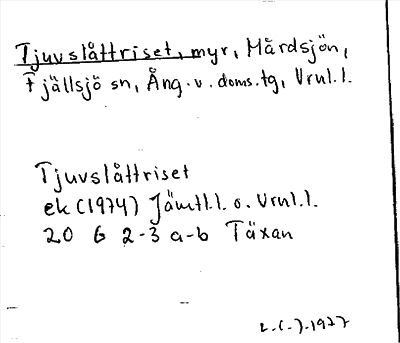 Tjuvslåttriset, myr, Mårdsjön,
Fjällsjö sn, Ång. v. doms.tg, Vrnl.l.
Tjuvslåttriset
ek (1974) Jämtl.l. o. Vrnl.l.
20 G 2-3 a-b Täxan
1977